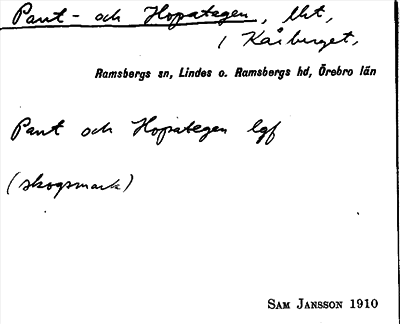 Pant- och Hopatagen, lht,
i Kåberget,
Ramsbergs sn, Lindes o. Ramsbergs hd, Örebro län
Pant och Hopategen lgf
(skogsmark)
Sam Jansson 1910